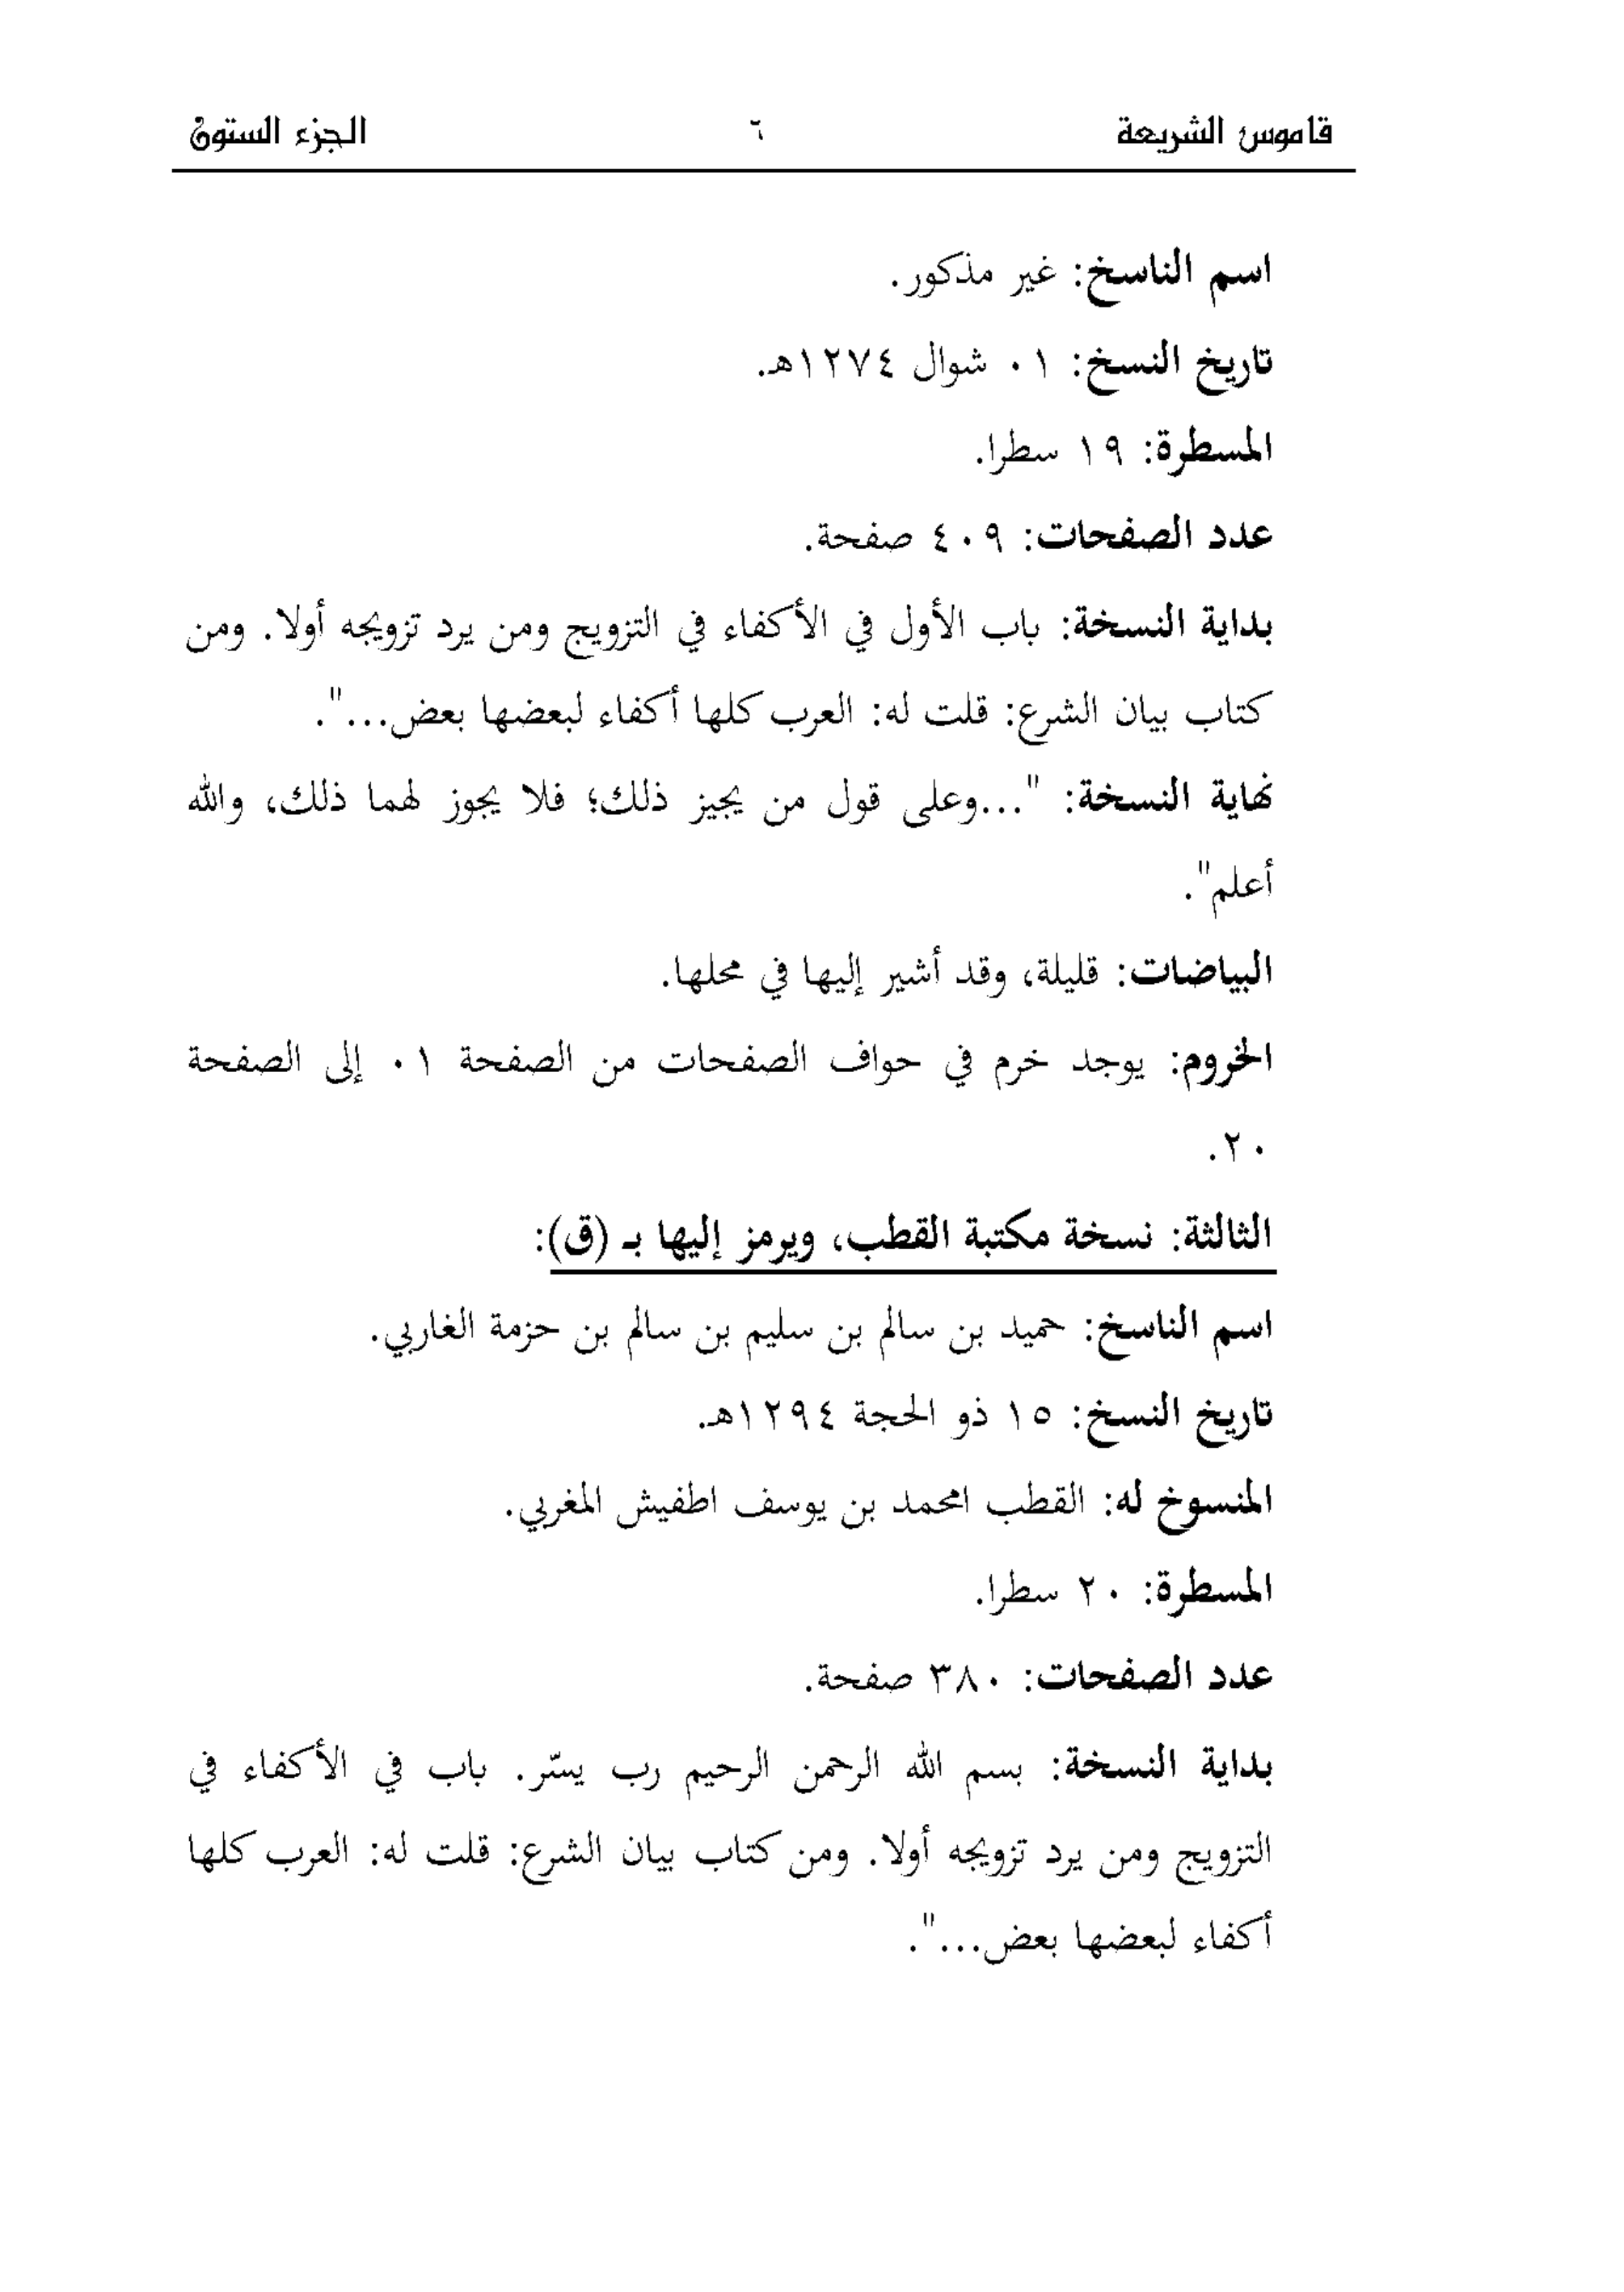 قاموس الشريعة ٦ الجزء الستون
اسم الناسخ: غير مذكور.
تاريخ النسخ: ٠١ شوال ١٢٧٤هـ.
المسطرة: ١٩ سطرا.
عدد الصفحات: ٤٠٩ صفحة.
بداية النسخة: باب الأول في الأكفاء في التزويج ومن يرد تزويجه أولا. ومن
كتاب بيان الشرع: قلت له: العرب كلها أكفاء لبعضها بعض...".
نهاية النسخة: "...وعلى قول من يجيز ذلك؛ فلا يجوز لهما ذلك، والله
أعلم".
البياضات: قليلة، وقد أشير إليها في محلها.
الخروم: يوجد خرم في حواف الصفحات من الصفحة ٠١ إلى الصفحة
٢٠.
الثالثة: نسخة مكتبة القطب، ويرمز إليها بـ (ق):
اسم الناسخ: حميد بن سالم بن سليم بن سالم بن حزمة الغاربي.
تاريخ النسخ: ١٥ ذو الحجة ١٢٩٤هـ.
المنسوخ له: القطب امحمد بن يوسف اطفيش المغربي.
المسطرة: ٢٠ سطرا.
عدد الصفحات: ٣٨٠ صفحة.
بداية النسخة: بسم الله الرحمن الرحيم رب يسّر. باب في الأكفاء في
التزويج ومن يرد تزويجه أولا. ومن كتاب بيان الشرع: قلت له: العرب كلها
أكفاء لبعضها بعض...".